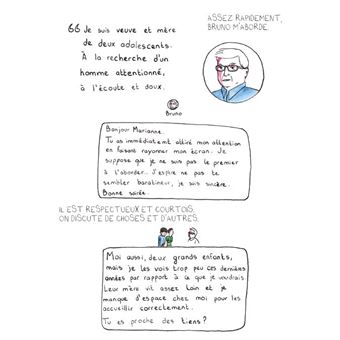 ❝ Je suis veuve et mère
de deux adolescents.
À la recherche d'un
homme attentionné,
à l'écoute et doux.
ASSEZ RAPIDEMENT,
BRUNO M'ABORDE.
Bruno
Bonjour Marianne.
Tu as immédiatement attiré mon attention
en faisant rayonner mon écran. Je
suppose que je ne suis pas le premier
à t'aborder. J'espère ne pas te
sembler baratineur, je suis sincère.
Bonne soirée.
IL EST RESPECTUEUX ET COURTOIS.
ON DISCUTE DE CHOSES ET D'AUTRES.
Moi aussi, deux grands enfants,
mais je les vois trop peu ces dernières
années par rapport à ce que je voudrais.
Leur mère vit assez loin et je
manque d'espace chez moi pour les
accueillir correctement.
Tu es proche des tiens?